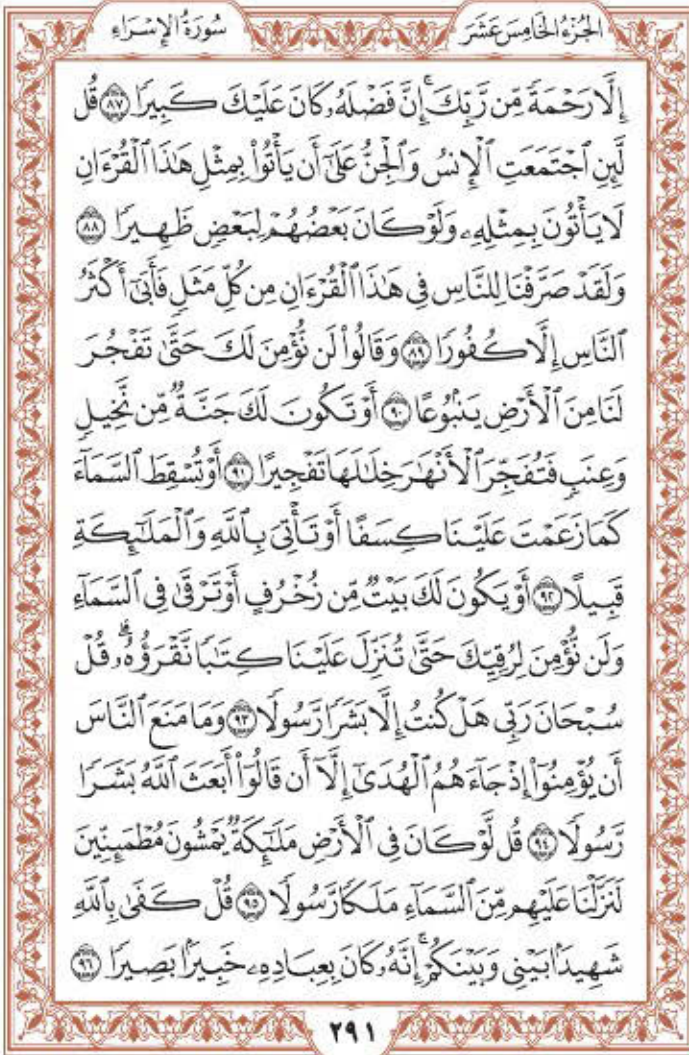 سُورَةُ الإِسْرَاءِ
الجُزْءُ الخَامِسَ عَشَرَ
إِلَّا رَحْمَةً مِّن رَّبِّكَۚ إِنَّ فَضْلَهُۥ كَانَ عَلَيْكَ كَبِيرًا ٨٧ قُل
لَّئِنِ ٱجْتَمَعَتِ ٱلْإِنسُ وَٱلْجِنُّ عَلَىٰٓ أَن يَأْتُوا۟ بِمِثْلِ هَٰذَا ٱلْقُرْءَانِ
لَا يَأْتُونَ بِمِثْلِهِۦ وَلَوْ كَانَ بَعْضُهُمْ لِبَعْضٍ ظَهِيرًا ٨٨
وَلَقَدْ صَرَّفْنَا لِلنَّاسِ فِى هَٰذَا ٱلْقُرْءَانِ مِن كُلِّ مَثَلٍ فَأَبَىٰٓ أَكْثَرُ
ٱلنَّاسِ إِلَّا كُفُورًا ٨٩ وَقَالُوا۟ لَن نُّؤْمِنَ لَكَ حَتَّىٰ تَفْجُرَ
لَنَا مِنَ ٱلْأَرْضِ يَنۢبُوعًا ٩٠ أَوْ تَكُونَ لَكَ جَنَّةٌ مِّن نَّخِيلٍ
وَعِنَبٍ فَتُفَجِّرَ ٱلْأَنْهَٰرَ خِلَٰلَهَا تَفْجِيرًا ٩١ أَوْ تُسْقِطَ ٱلسَّمَآءَ
كَمَا زَعَمْتَ عَلَيْنَا كِسَفًا أَوْ تَأْتِىَ بِٱللَّهِ وَٱلْمَلَٰٓئِكَةِ
قَبِيلًا ٩٢ أَوْ يَكُونَ لَكَ بَيْتٌ مِّن زُخْرُفٍ أَوْ تَرْقَىٰ فِى ٱلسَّمَآءِ
وَلَن نُّؤْمِنَ لِرُقِيِّكَ حَتَّىٰ تُنَزِّلَ عَلَيْنَا كِتَٰبًا نَّقْرَؤُهُۥۗ قُلْ
سُبْحَانَ رَبِّى هَلْ كُنتُ إِلَّا بَشَرًا رَّسُولًا ٩٣ وَمَا مَنَعَ ٱلنَّاسَ
أَن يُؤْمِنُوٓا۟ إِذْ جَآءَهُمُ ٱلْهُدَىٰٓ إِلَّآ أَن قَالُوٓا۟ أَبَعَثَ ٱللَّهُ بَشَرًا
رَّسُولًا ٩٤ قُل لَّوْ كَانَ فِى ٱلْأَرْضِ مَلَٰٓئِكَةٌ يَمْشُونَ مُطْمَئِنِّينَ
لَنَزَّلْنَا عَلَيْهِم مِّنَ ٱلسَّمَآءِ مَلَكًا رَّسُولًا ٩٥ قُلْ كَفَىٰ بِٱللَّهِ
شَهِيدًۢا بَيْنِى وَبَيْنَكُمْۚ إِنَّهُۥ كَانَ بِعِبَادِهِۦ خَبِيرًۢا بَصِيرًا ٩٦
٢٩١